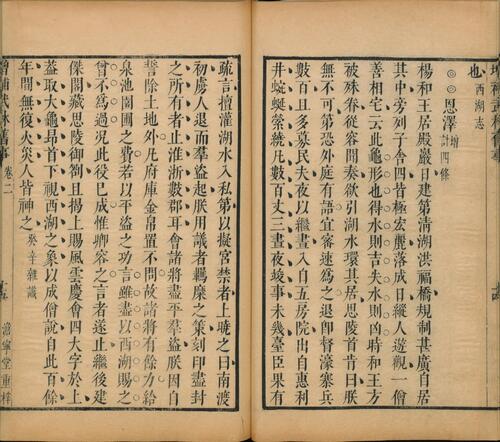 增補武林舊事
也西湖志
◎◎恩澤增計四條
楊和王居殿巖日建第清湖洪福橋規制甚廣自居
其中旁列子舍四皆極宏麗落成日縱人遊觀一僧
善相宅云此龜形也得水則吉失水則凶時和王方
被殊眷從容聞奏欲引湖水環其居思陵首肯曰朕
無不可第恐外庭有語宜密速爲之退卽督濠寨兵
數百且多募民夫夜以繼晝入自五房院出自惠利
井蜿蜒縈繞凡數百丈三晝夜竣事未幾臺臣果有
疏言擅灌湖水入私第以擬宮禁者上曉之曰南渡
初虜人退而羣盜起朕用議者羈縻之策刻印盡封
之所有者止淮浙數郡耳會諸將盡平羣盜朕因自
誓除土地外凡府庫金帛置不問故諸將有餘力給
泉池園圃之費若以平盜之功言雖盡以西湖賜之
曾不爲過況此役已成惟卿容之言者遂止繼後建
傑閣藏思陵御劄且揭上賜風雲慶會四大字於上
蓋取大龜昂首下視西湖之象以成僧說自此百餘
年間無復火災人皆神之癸辛雜識
增補武林舊事 卷二 十五 澹寧堂重梓